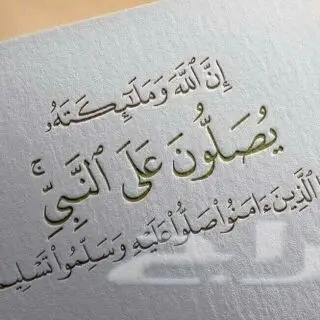 إِنَّ ٱللَّهَ وَمَلَـٰٓئِكَتَهُۥ
يُصَلُّونَ عَلَى ٱلنَّبِىِّ ۚ
ٱلَّذِينَ ءَامَنُوا۟ صَلُّوا۟ عَلَيْهِ وَسَلِّمُوا۟